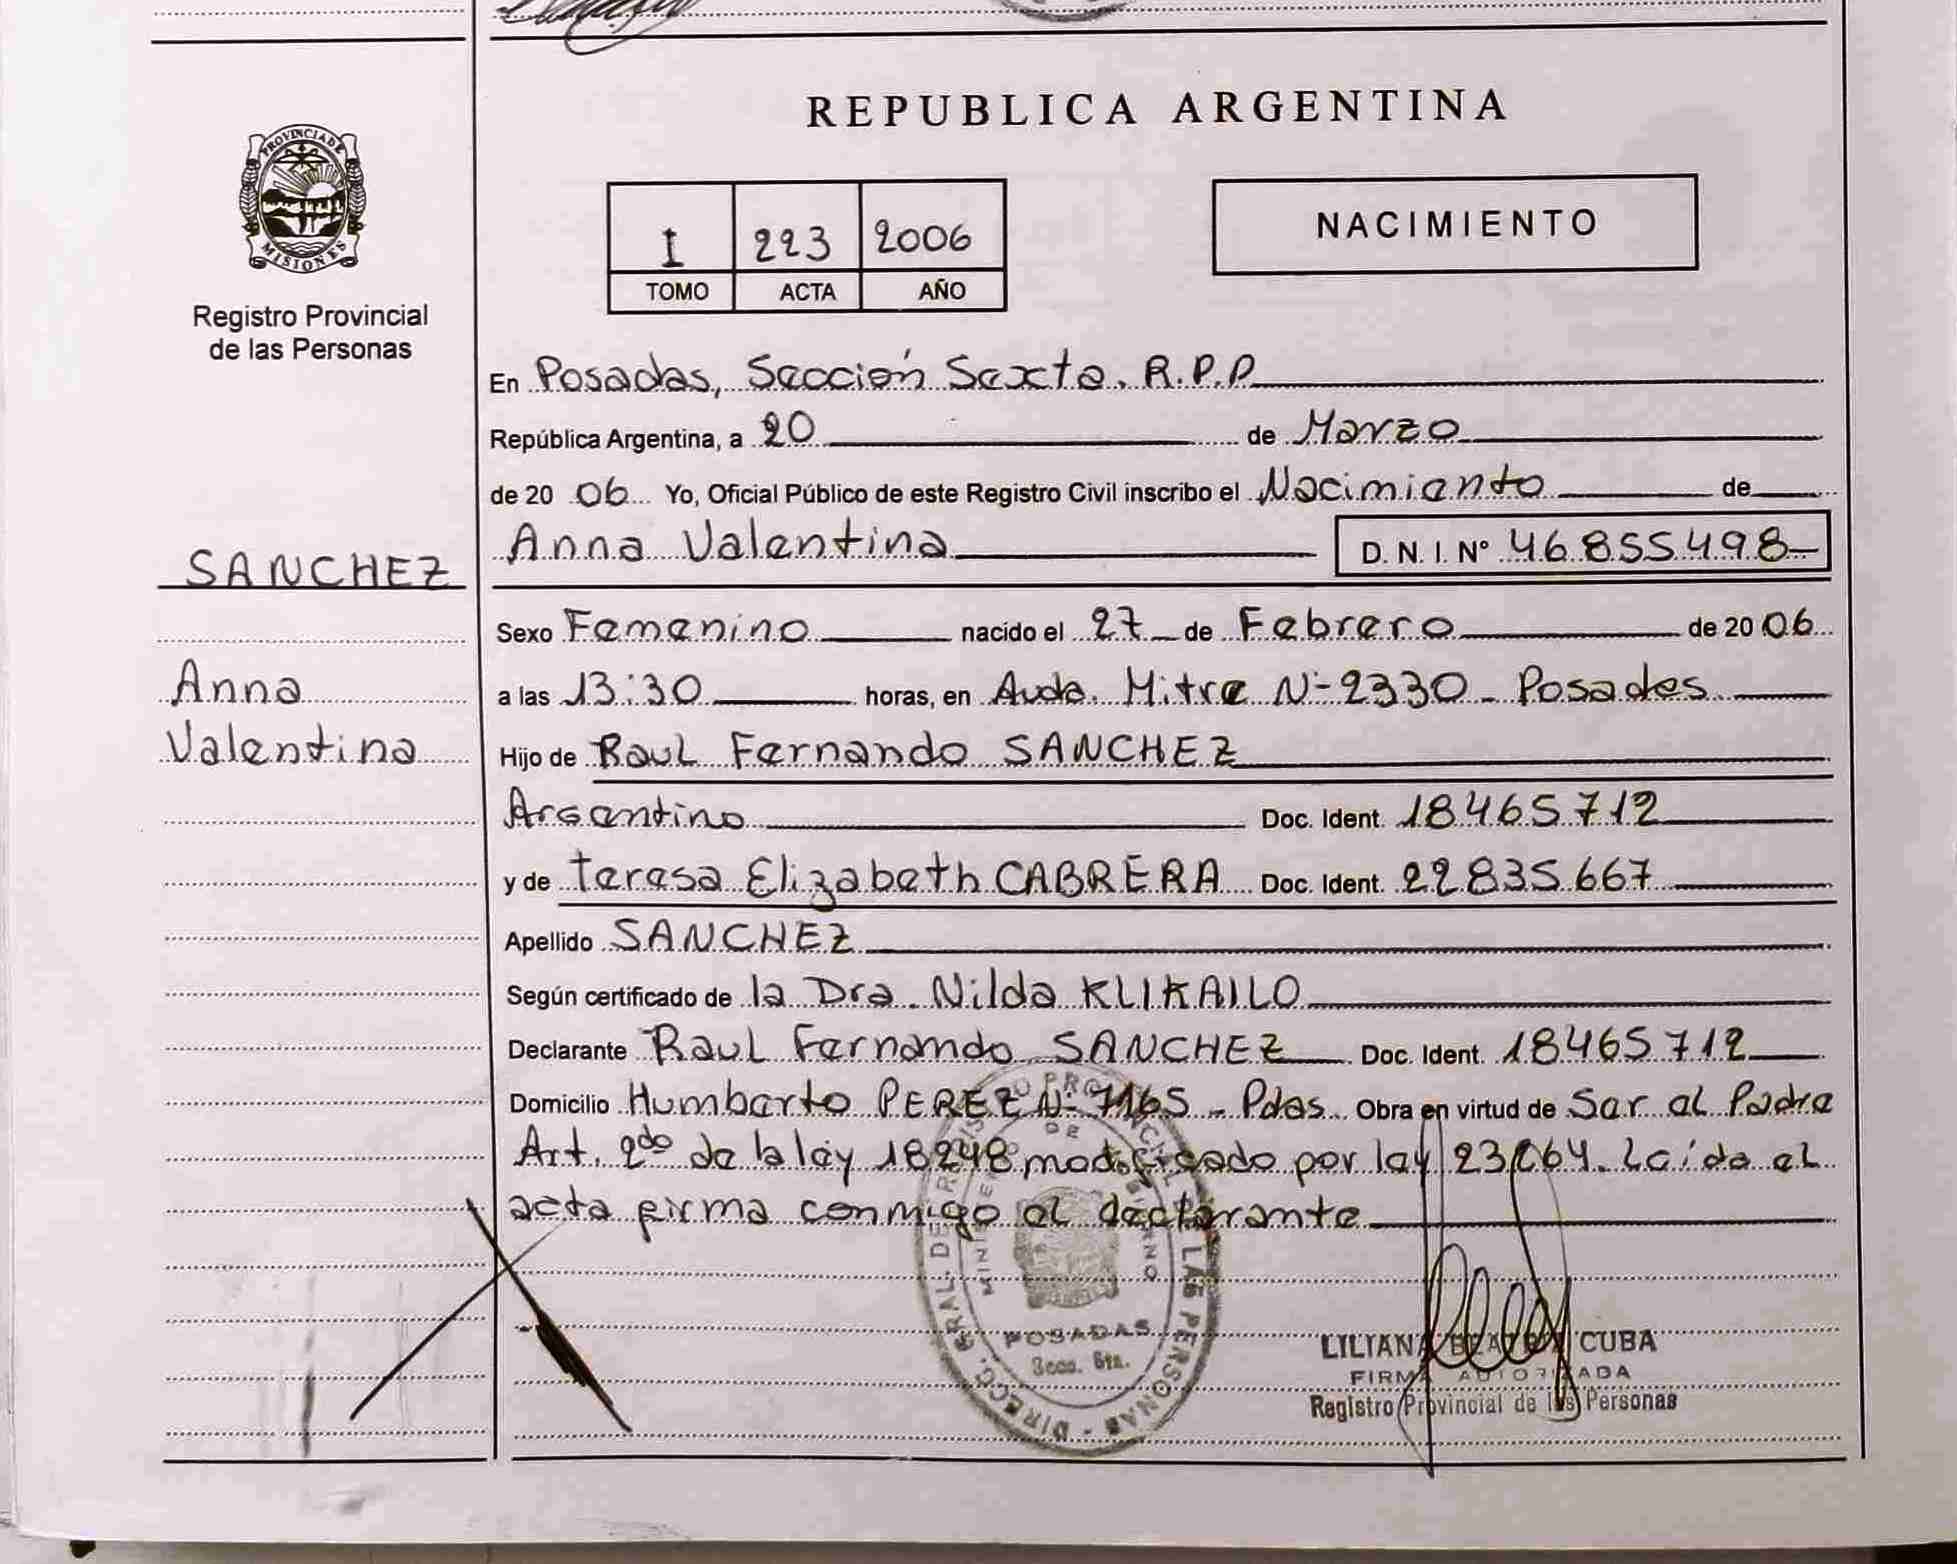 REPUBLICA ARGENTINA
PROVINCIA DE
MISIONES
Registro Provincial
de las Personas
I 223 2006
TOMO ACTA AÑO
NACIMIENTO
En Posadas, Sección Sexta. R.P.P
República Argentina, a 20 de Marzo
de 2006 Yo, Oficial Público de este Registro Civil inscribo el Nacimiento de
SANCHEZ
Anna
Valentina
Anna Valentina D. N. I. N° 46.855.498
Sexo Femenino nacido el 27 de Febrero de 2006
a las 13:30 horas, en Avda. Mitre N°-2330 - Posadas
Hijo de Raul Fernando SANCHEZ
Argentino Doc. Ident. 18465712
y de Teresa Elizabeth CABRERA Doc. Ident. 22835667
Apellido SANCHEZ
Según certificado de la Dra. Nilda KLIKAILO
Declarante Raul Fernando SANCHEZ Doc. Ident. 18465712
Domicilio Humberto PEREZ N°- 7165 - Pdas Obra en virtud de Ser el Padre
Art. 2do de la ley 18248 modificado por ley 23264. Leída el
acta firma conmigo el declarante
DIRECC. GRAL. DE REGISTRO PROVINCIAL DE LAS PERSONAS
MINISTERIO DE GOBIERNO
POSADAS
Secc. 6ta.
LILIANA BEATRIZ CUBA
FIRMA AUTORIZADA
Registro Provincial de las Personas